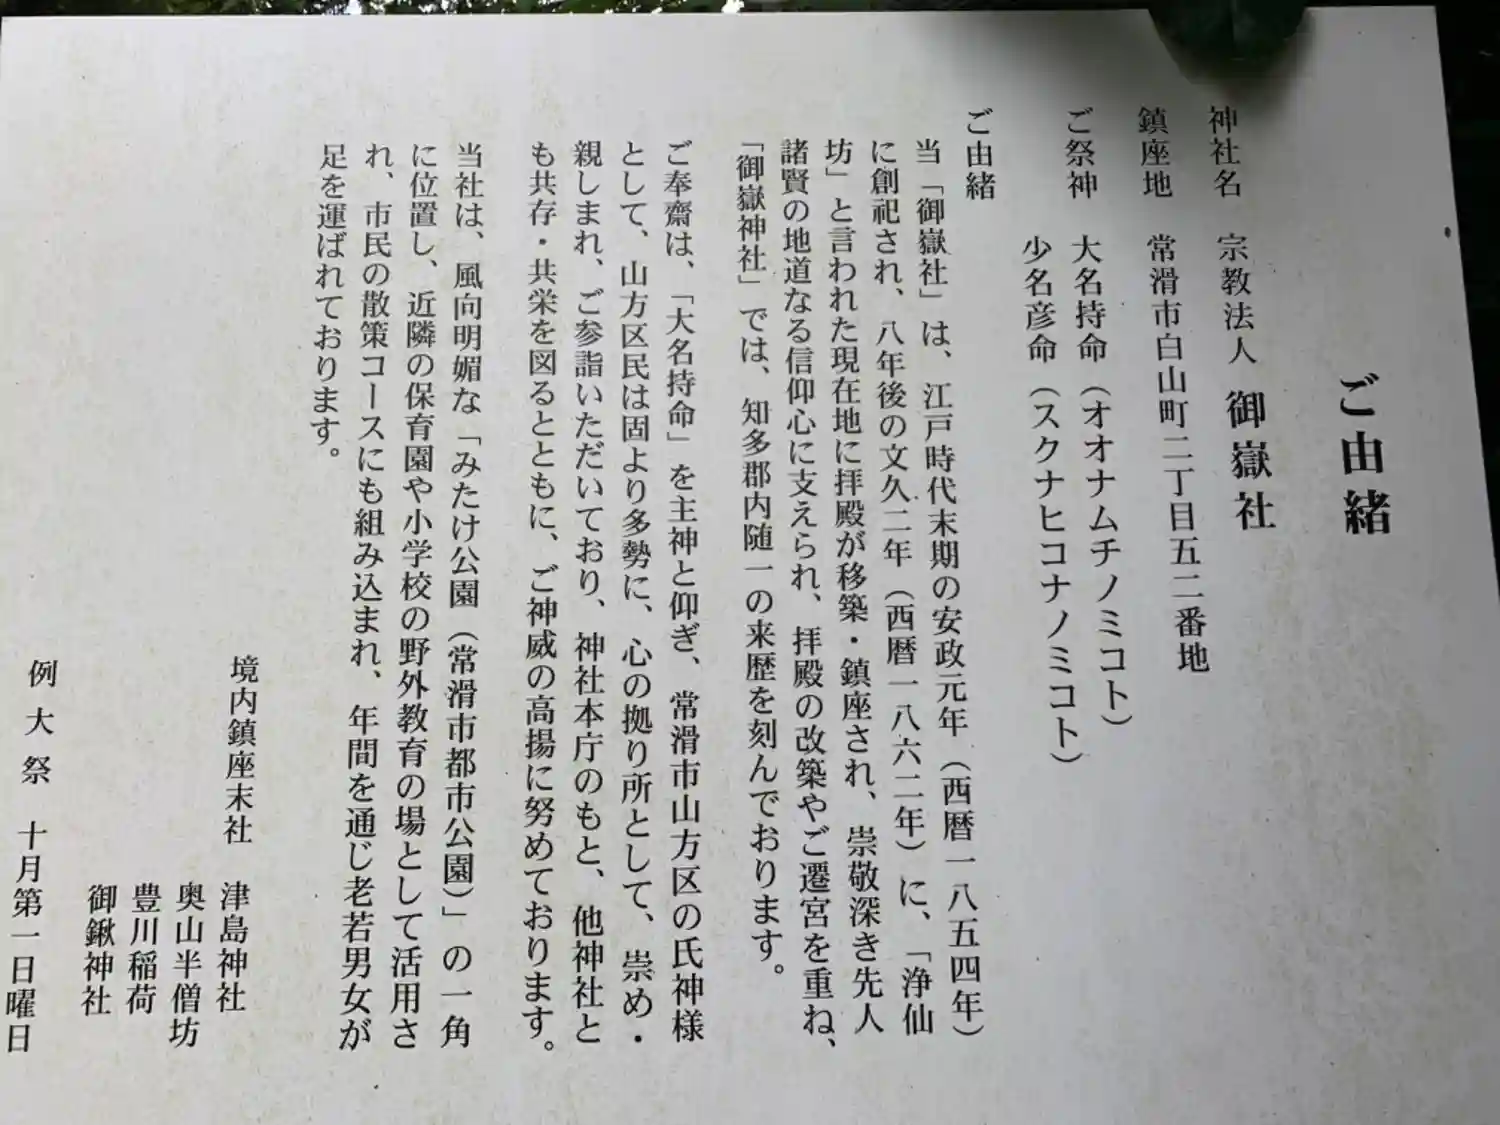 ご由緒
神社名　宗教法人　御嶽社
鎮座地　常滑市白山町二丁目五二番地
ご祭神　大名持命（オオナムチノミコト）
少名彦命（スクナヒコナノミコト）
ご由緒
当「御嶽社」は、江戸時代末期の安政元年（西暦一八五四年）
に創祀され、八年後の文久二年（西暦一八六二年）に、「浄仙
坊」と言われた現在地に拝殿が移築・鎮座され、崇敬深き先人
諸賢の地道なる信仰心に支えられ、拝殿の改築やご遷宮を重ね、
「御嶽神社」では、知多郡内随一の来歴を刻んでおります。
ご奉齋は、「大名持命」を主神と仰ぎ、常滑市山方区の氏神様
として、山方区民は固より多勢に、心の拠り所として、崇め・
親しまれ、ご参詣いただいており、神社本庁のもと、他神社と
も共存・共栄を図るとともに、ご神威の高揚に努めております。
当社は、風向明媚な「みたけ公園（常滑市都市公園）」の一角
に位置し、近隣の保育園や小学校の野外教育の場として活用さ
れ、市民の散策コースにも組み込まれ、年間を通じ老若男女が
足を運ばれております。
境内鎮座末社　津島神社
奥山半僧坊
豊川稲荷
御鍬神社
例大祭　十月第一日曜日